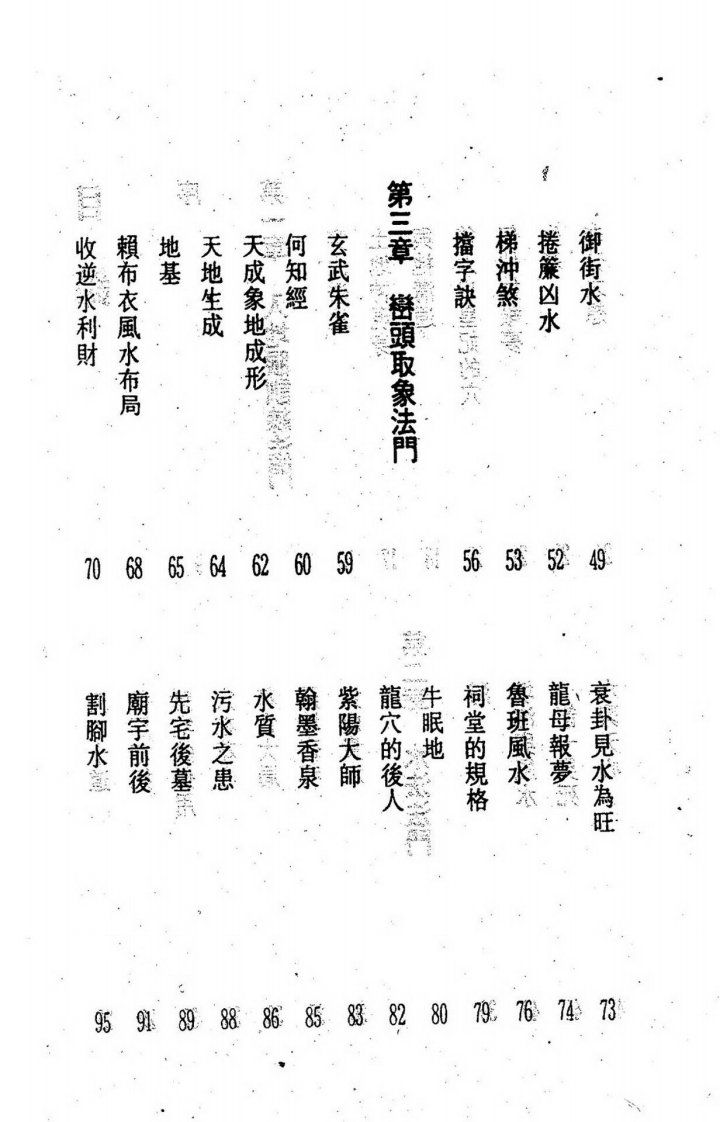 御街水 49
捲簾凶水 52
梯沖煞 53
擋字訣 56
第三章 巒頭取象法門
玄武朱雀 59
何知經 60
天成象地成形 62
天地生成 64
地基 65
賴布衣風水布局 68
收逆水利財 70
衰卦見水為旺 73
龍母報夢 74
魯班風水 76
祠堂的規格 79
牛眠地 80
龍穴的後人 82
紫陽大師 83
翰墨香泉 85
水質 86
污水之患 88
先宅後墓 89
廟宇前後 91
割腳水 95